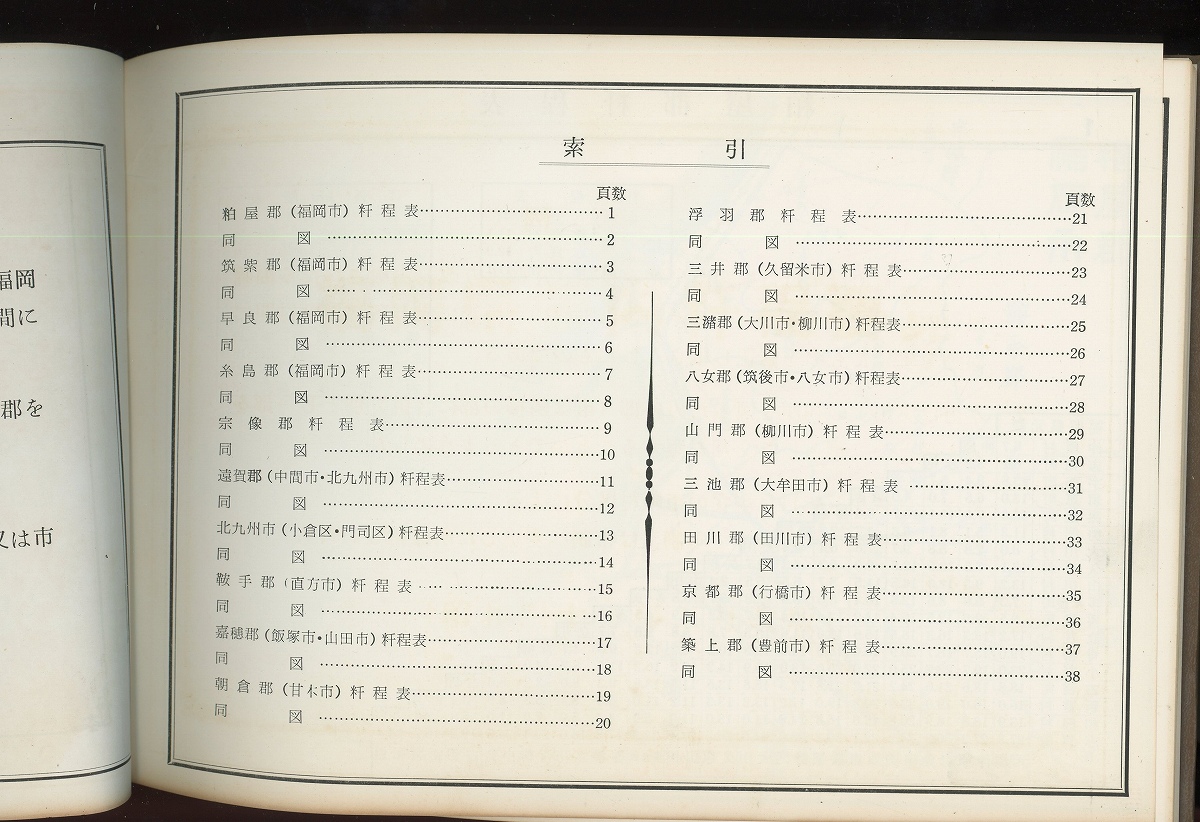 福岡
間に
郡を
又は市
索　引
頁数
粕屋郡（福岡市）粁程表……1
同　図……2
筑紫郡（福岡市）粁程表……3
同　図……4
早良郡（福岡市）粁程表……5
同　図……6
糸島郡（福岡市）粁程表……7
同　図……8
宗像郡粁程表……9
同　図……10
遠賀郡（中間市・北九州市）粁程表……11
同　図……12
北九州市（小倉区・門司区）粁程表……13
同　図……14
鞍手郡（直方市）粁程表……15
同　図……16
嘉穂郡（飯塚市・山田市）粁程表……17
同　図……18
朝倉郡（甘木市）粁程表……19
同　図……20
頁数
浮羽郡粁程表……21
同　図……22
三井郡（久留米市）粁程表……23
同　図……24
三潴郡（大川市・柳川市）粁程表……25
同　図……26
八女郡（筑後市・八女市）粁程表……27
同　図……28
山門郡（柳川市）粁程表……29
同　図……30
三池郡（大牟田市）粁程表……31
同　図……32
田川郡（田川市）粁程表……33
同　図……34
京都郡（行橋市）粁程表……35
同　図……36
築上郡（豊前市）粁程表……37
同　図……38